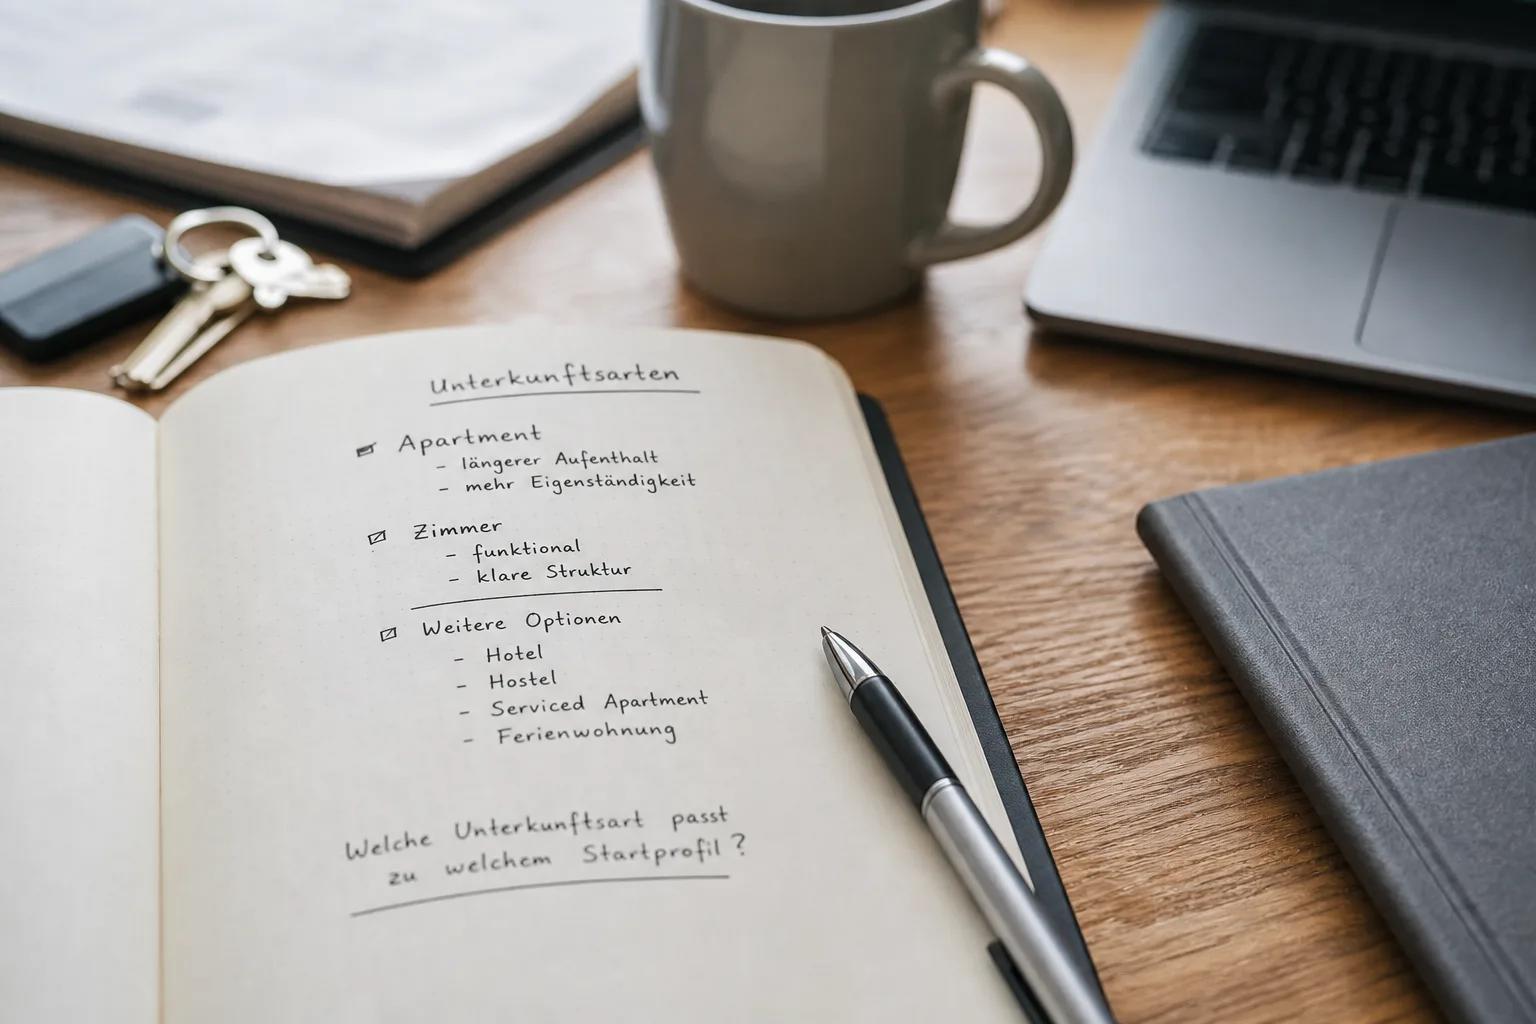 Unterkunftsarten
Apartment
- längerer Aufenthalt
- mehr Eigenständigkeit
Zimmer
- funktional
- klare Struktur
Weitere Optionen
- Hotel
- Hostel
- Serviced Apartment
- Ferienwohnung
Welche Unterkunftsart passt
zu welchem Startprofil?